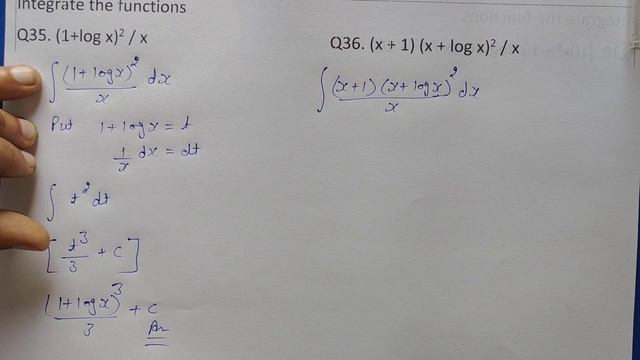 Integrate the functions
Q35. (1+log x)² / x
∫ (1+logx)² / x dx
Put 1+logx = t
1/x dx = dt
∫ t² dt
[ t³/3 + c ]
(1+logx)³ / 3 + c
An
Q36. (x + 1) (x + log x)² / x
∫ (x+1) (x+logx)² / x dx